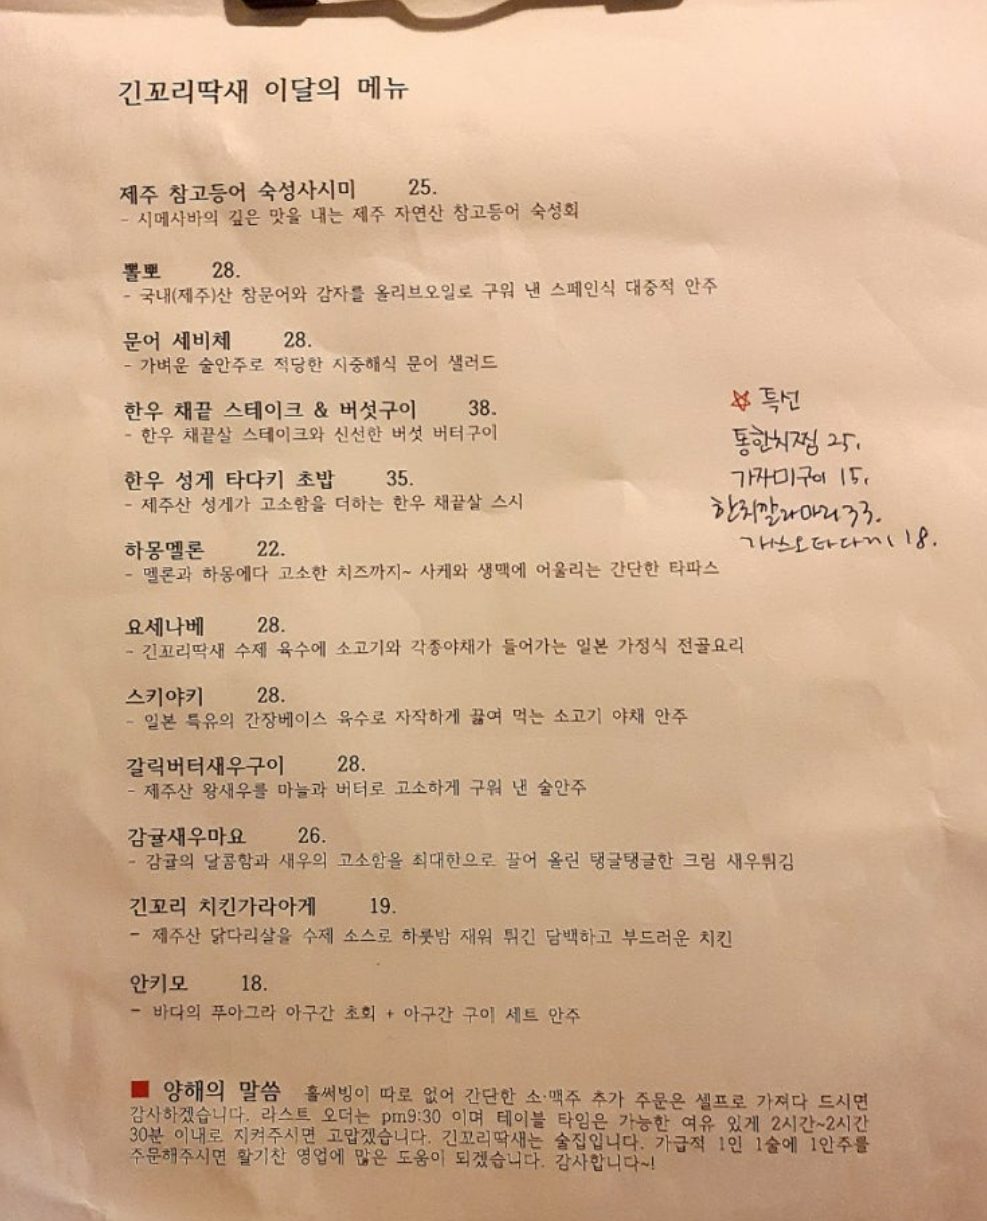 긴꼬리딱새 이달의 메뉴
제주 참고등어 숙성사시미 25.
- 시메사바의 깊은 맛을 내는 제주 자연산 참고등어 숙성회
뽈뽀 28.
- 국내(제주)산 참문어와 감자를 올리브오일로 구워 낸 스페인식 대중적 안주
문어 세비체 28.
- 가벼운 술안주로 적당한 지중해식 문어 샐러드
한우 채끝 스테이크 & 버섯구이 38.
- 한우 채끝살 스테이크와 신선한 버섯 버터구이
한우 성게 타다키 초밥 35.
- 제주산 성게가 고소함을 더하는 한우 채끝살 스시
하몽멜론 22.
- 멜론과 하몽에다 고소한 치즈까지~ 사케와 생맥에 어울리는 간단한 타파스
요세나베 28.
- 긴꼬리딱새 수제 육수에 소고기와 각종야채가 들어가는 일본 가정식 전골요리
스키야키 28.
- 일본 특유의 간장베이스 육수로 자작하게 끓여 먹는 소고기 야채 안주
갈릭버터새우구이 28.
- 제주산 왕새우를 마늘과 버터로 고소하게 구워 낸 술안주
감귤새우마요 26.
- 감귤의 달콤함과 새우의 고소함을 최대한으로 끌어 올린 탱글탱글한 크림 새우튀김
긴꼬리 치킨가라아게 19.
- 제주산 닭다리살을 수제 소스로 하룻밤 재워 튀긴 담백하고 부드러운 치킨
안키모 18.
- 바다의 푸아그라 아구간 초회 + 아구간 구이 세트 안주
특선
통한치찜 25.
가자미구이 15.
한치깔라마리 33.
가쓰오타다끼 18.
■ 양해의 말씀 홀써빙이 따로 없어 간단한 소·맥주 추가 주문은 셀프로 가져다 드시면
감사하겠습니다. 라스트 오더는 pm9:30 이며 테이블 타임은 가능한 여유 있게 2시간~2시간
30분 이내로 지켜주시면 고맙겠습니다. 긴꼬리딱새는 술집입니다. 가급적 1인 1술에 1안주를
주문해주시면 활기찬 영업에 많은 도움이 되겠습니다. 감사합니다~!